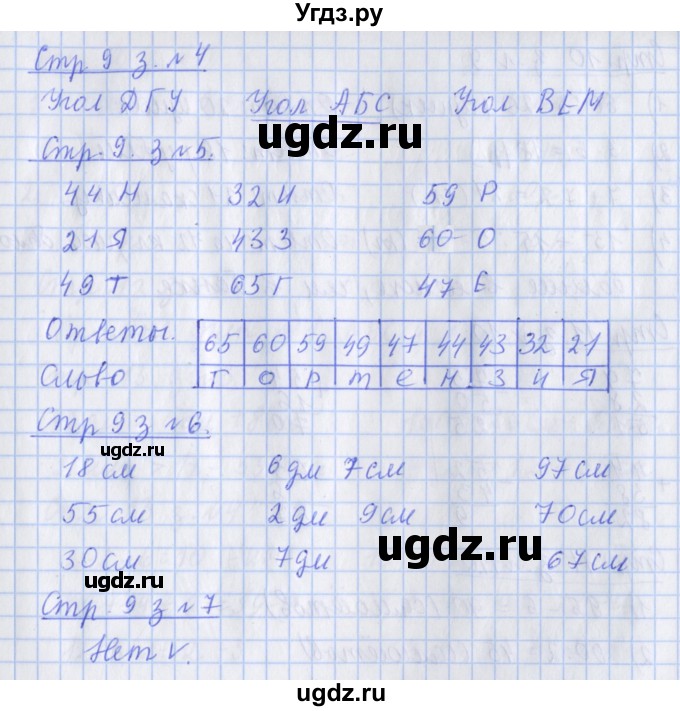 Угдз.ру
Стр. 9 з. №4
Угол ДГУ Угол АБС Угол ВЕМ
ugdz.ru
Стр. 9. з №5.
44 Н 32 И 59 Р
21 Я 43 З 60 О
49 Т 65 Г 47 Е
Ответы. 65 60 59 49 47 44 43 32 21
Слово Г о р т е н з и я
Стр 9 з №6.
ugdz.ru
18 см 6 дм 7 см 97 см
55 см 2 дм 9 см 70 см
ugdz.ru
30 см 7 дм 67 см
ugdz.ru
Стр. 9 з №7
Нет V.
ugdz.ru
ugdz.ru